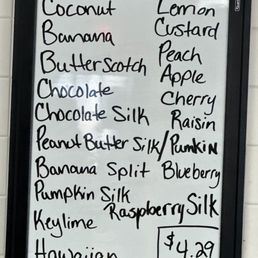 Coconut
Banana
ButterScotch
Chocolate
Chocolate Silk
Peanut Butter Silk/Pumkin
Banana Split
Pumpkin Silk
Keylime
Hawaiian
Lemon
Custard
Peach
Apple
Cherry
Raisin
Blueberry
Raspberry Silk
$4.29